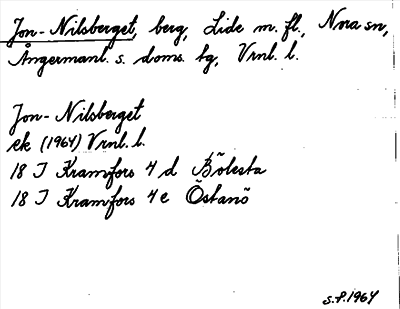 Jon-Nilsberget, berg, Lide m. fl., Nora sn,
Ångermanl. s. doms. tg, Vrnl. l.
Jon-Nilsberget
ek (1964) Vrnl. l.
18 I Kramfors 4 d Bölesta
18 I Kramfors 4 e Östanö
S.P. 1964